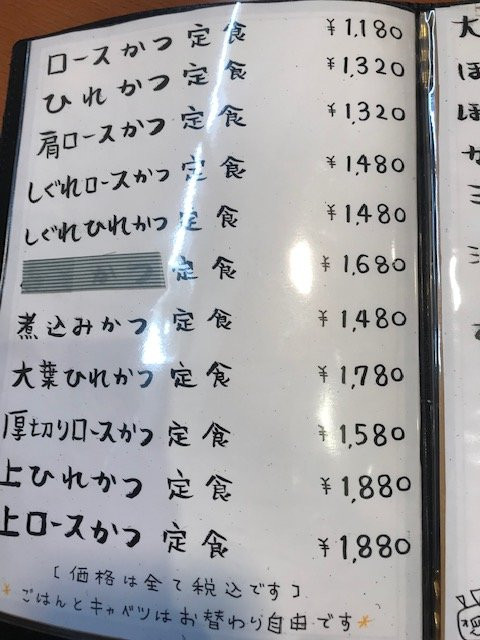 ロースかつ定食 ¥1,180
ひれかつ定食 ¥1,320
肩ロースかつ定食 ¥1,320
しぐれロースかつ定食 ¥1,480
しぐれひれかつ定食 ¥1,480
定食 ¥1,680
煮込みかつ定食 ¥1,480
大葉ひれかつ定食 ¥1,780
厚切りロースかつ定食 ¥1,580
上ひれかつ定食 ¥1,880
上ロースかつ定食 ¥1,880
[価格は全て税込です]
*ごはんとキャベツはお替わり自由です*
大
ほ
ほ